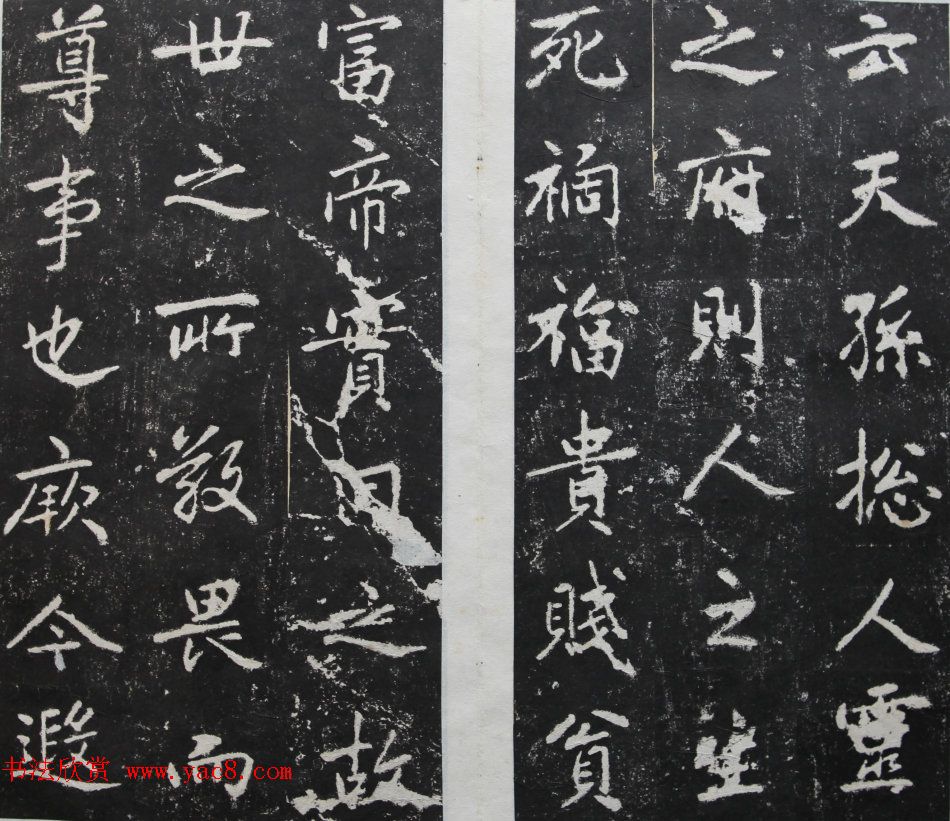 云天孫捴人靈
之府則人之生
死禍福貴賤貧
富帝實司之故
世之所敬畏而
尊事也厥今遐
书法欣赏 www.yac8.com